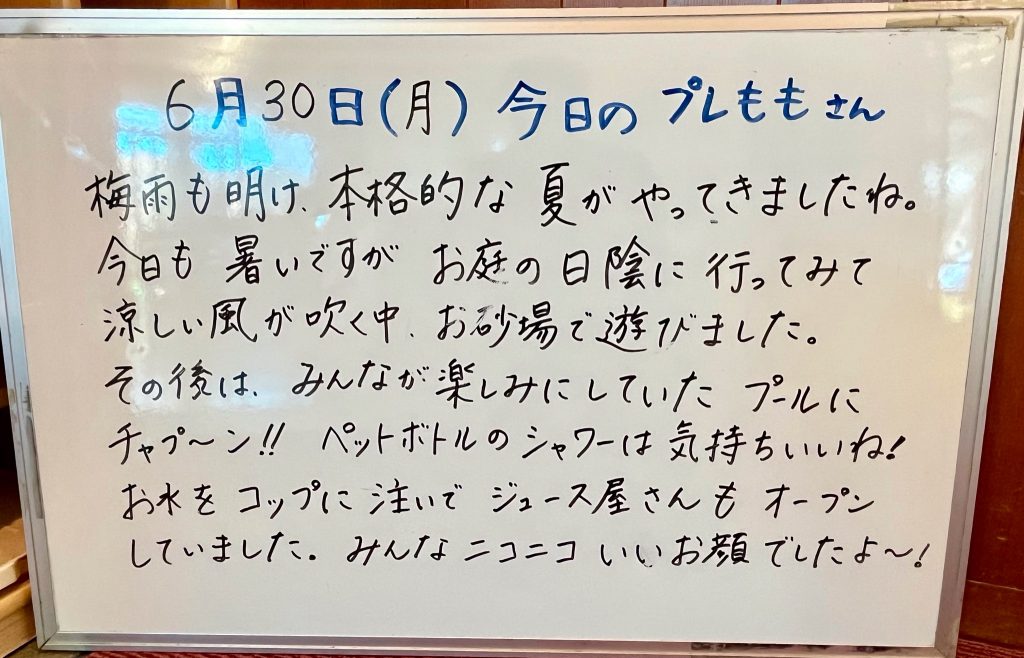 6月30日(月) 今日の プレももさん
梅雨も明け、本格的な 夏が やってきましたね。
今日も 暑いですが お庭の 日陰に 行ってみて
涼しい風が吹く中、お砂場で遊びました。
その後は、みんなが楽しみにしていた プールに
チャプ〜ン!! ペットボトルの シャワーは 気持ちいいね!
お水を コップに 注いで ジュース屋さんも オープン
していました。みんな ニコニコ いいお顔 でしたよ〜!